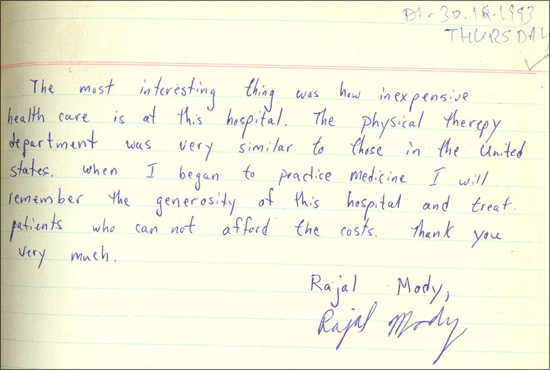 Dt- 30.12.1993
THURSDAY
The most interesting thing was how inexpensive
health care is at this hospital. The physical therepy
department was very similar to those in the United
states. When I began to practice medicine I will
remember the generosity of this hospital and treat
patients who can not afford the costs. Thank you
very much.
Rajal Mody,
Rajal Mody